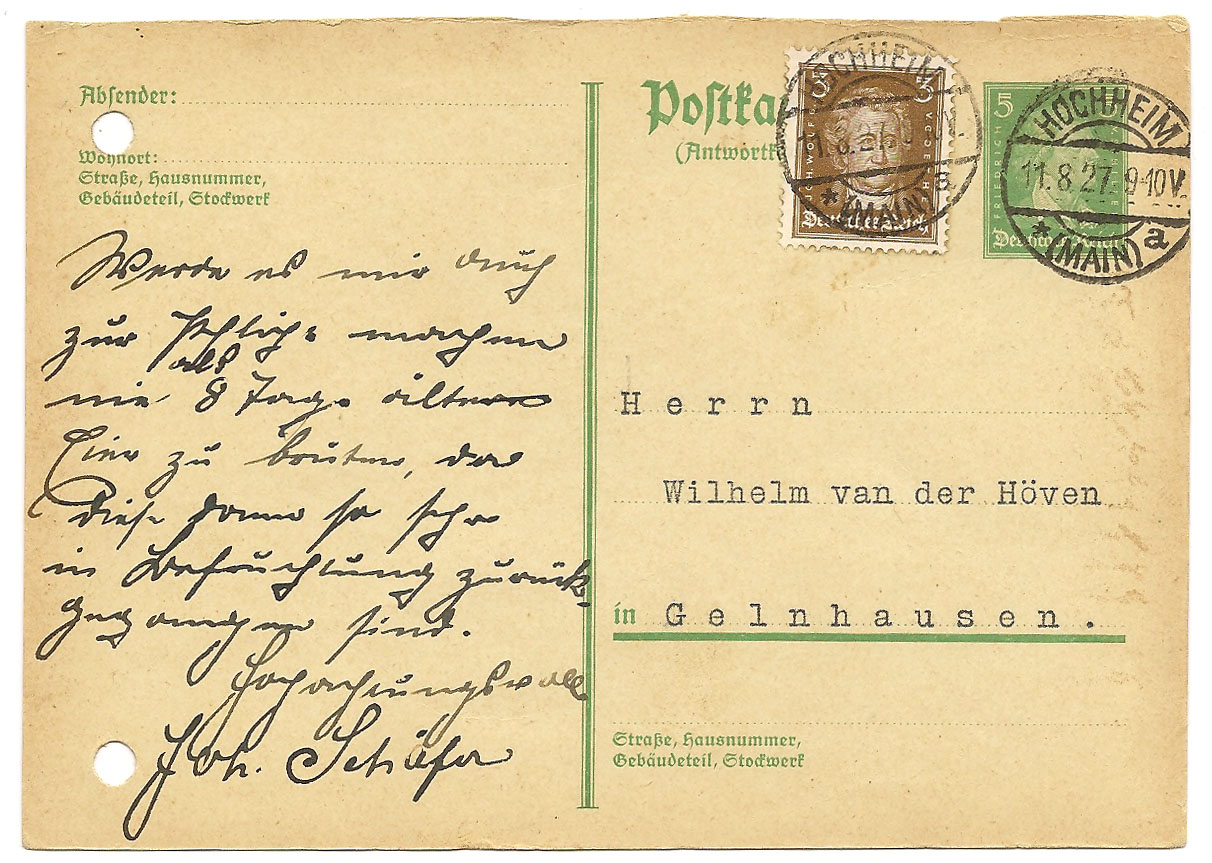 Absender:
Wohnort:
Straße, Hausnummer,
Gebäudeteil, Stockwerk
Werde es mir auch
zur Pflicht machen
nie als 8 Tage ältere
Eier zu bruten, da
diese dann so sehr
in Befruchtung zurück-
gegangen sind.
Hochachtungsvoll
Joh. Schäfer
Postka
(Antwortk
3 3
Deutsches Reich
HOCHHEIM
11.8.27
* (MAIN) a
5
FRIEDRICH
Deutsches Reich
HOCHHEIM
11.8.27. 9-10V.
* (MAIN) a
Herrn
Wilhelm van der Höven
in Gelnhausen.
Straße, Hausnummer,
Gebäudeteil, Stockwerk